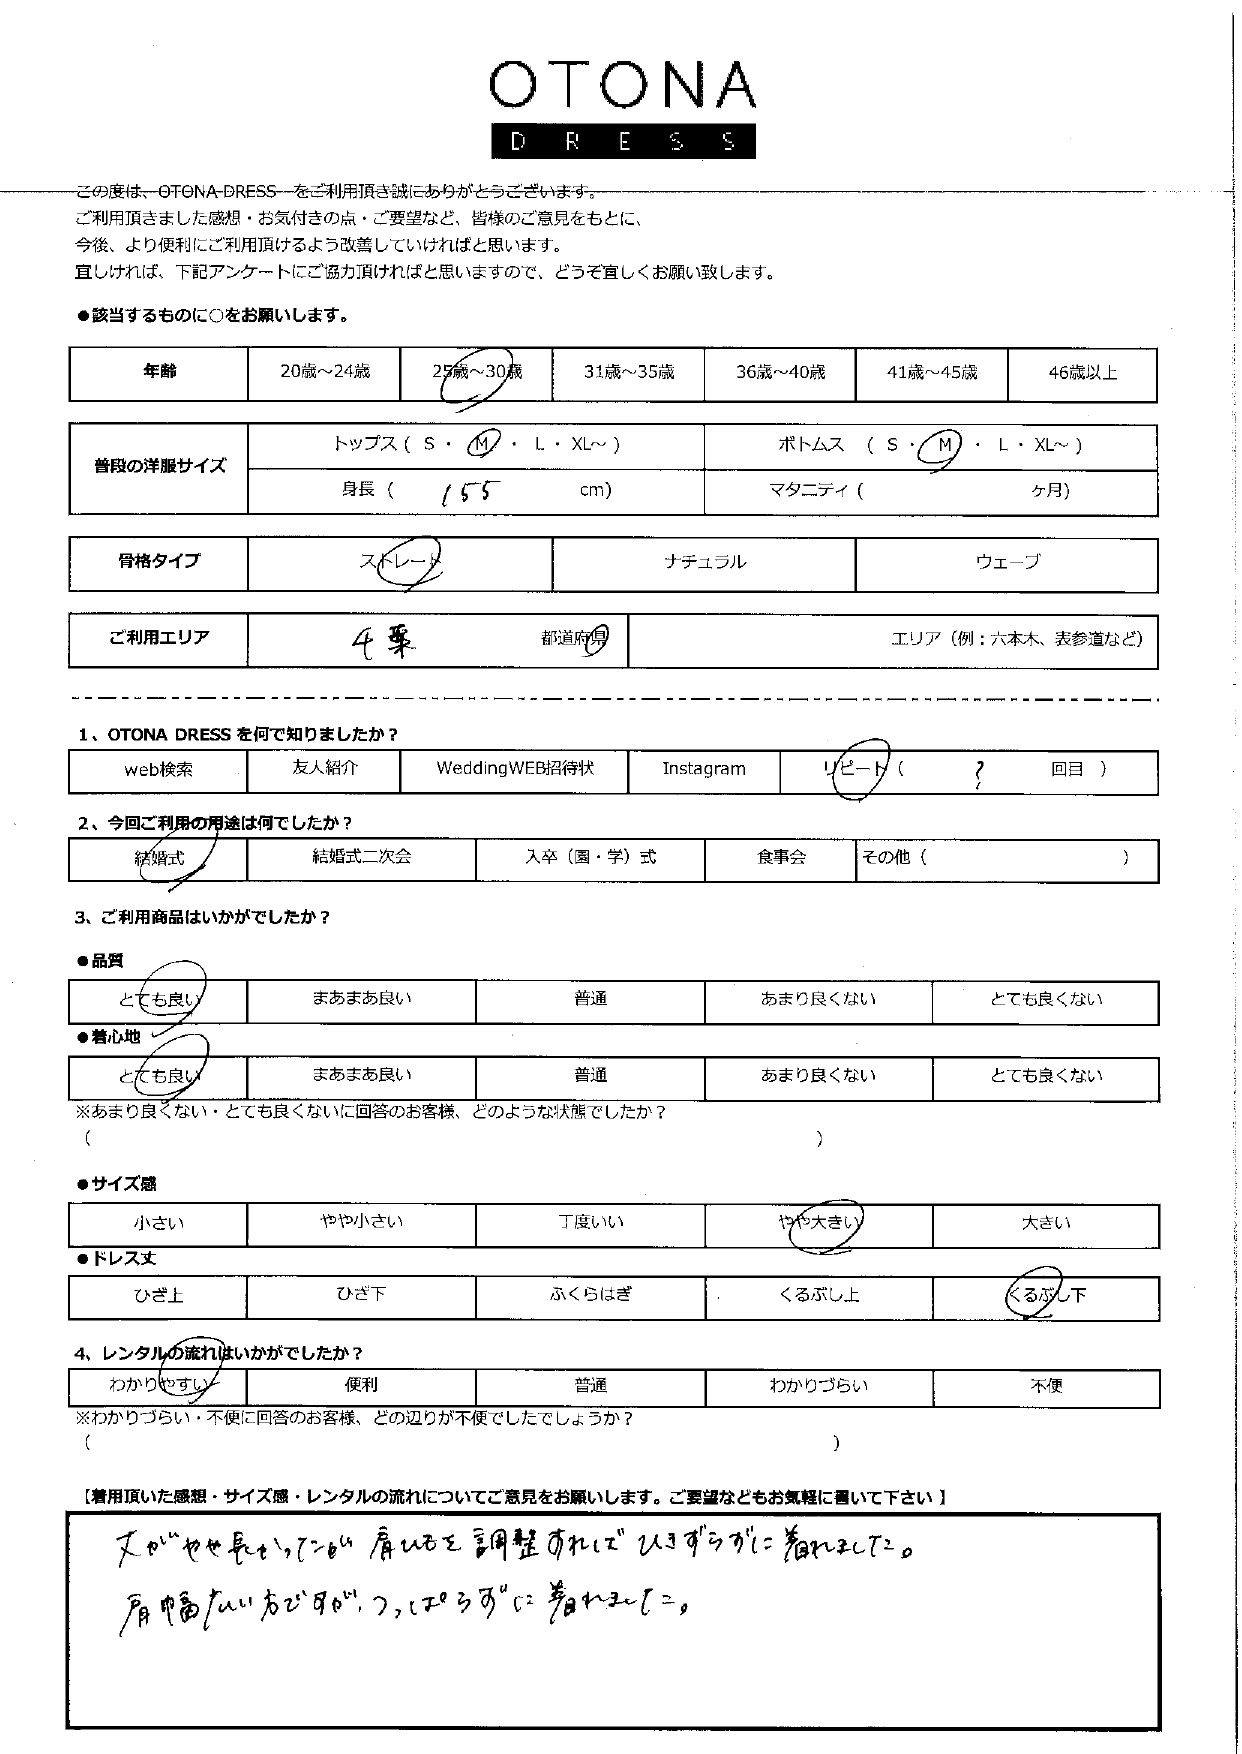 OTONA
DRESS
この度は、OTONA DRESS をご利用頂き誠にありがとうございます。
ご利用頂きました感想・お気付きの点・ご要望など、皆様のご意見をもとに、
今後、より便利にご利用頂けるよう改善していければと思います。
宜しければ、下記アンケートにご協力頂ければと思いますので、どうぞ宜しくお願い致します。
●該当するものに○をお願いします。
年齢 20歳～24歳 25歳～30歳 31歳～35歳 36歳～40歳 41歳～45歳 46歳以上
普段の洋服サイズ トップス ( S ・ M ・ L ・ XL～ ) ボトムス ( S ・ M ・ L ・ XL～ )
身長 ( 155 cm) マタニティ ( ケ月)
骨格タイプ ストレート ナチュラル ウェーブ
ご利用エリア 千葉 都道府県 エリア（例：六本木、表参道など）
1、OTONA DRESS を何で知りましたか？
web検索 友人紹介 WeddingWEB招待状 Instagram リピート ( ? 回目 )
2、今回ご利用の用途は何でしたか？
結婚式 結婚式二次会 入卒（園・学）式 食事会 その他 ( )
3、ご利用商品はいかがでしたか？
●品質
とても良い まあまあ良い 普通 あまり良くない とても良くない
●着心地
とても良い まあまあ良い 普通 あまり良くない とても良くない
※あまり良くない・とても良くないに回答のお客様、どのような状態でしたか？
( )
●サイズ感
小さい やや小さい 丁度いい やや大きい 大きい
●ドレス丈
ひざ上 ひざ下 ふくらはぎ くるぶし上 くるぶし下
4、レンタルの流れはいかがでしたか？
わかりやすい 便利 普通 わかりづらい 不便
※わかりづらい・不便に回答のお客様、どの辺りが不便でしたでしょうか？
( )
【着用頂いた感想・サイズ感・レンタルの流れについてご意見をお願いします。ご要望などもお気軽に書いて下さい】
丈がやや長かったが 肩ひもを調整すればひきずらずに着れました。
肩幅ない方ですが、つっぱらずに着れました。